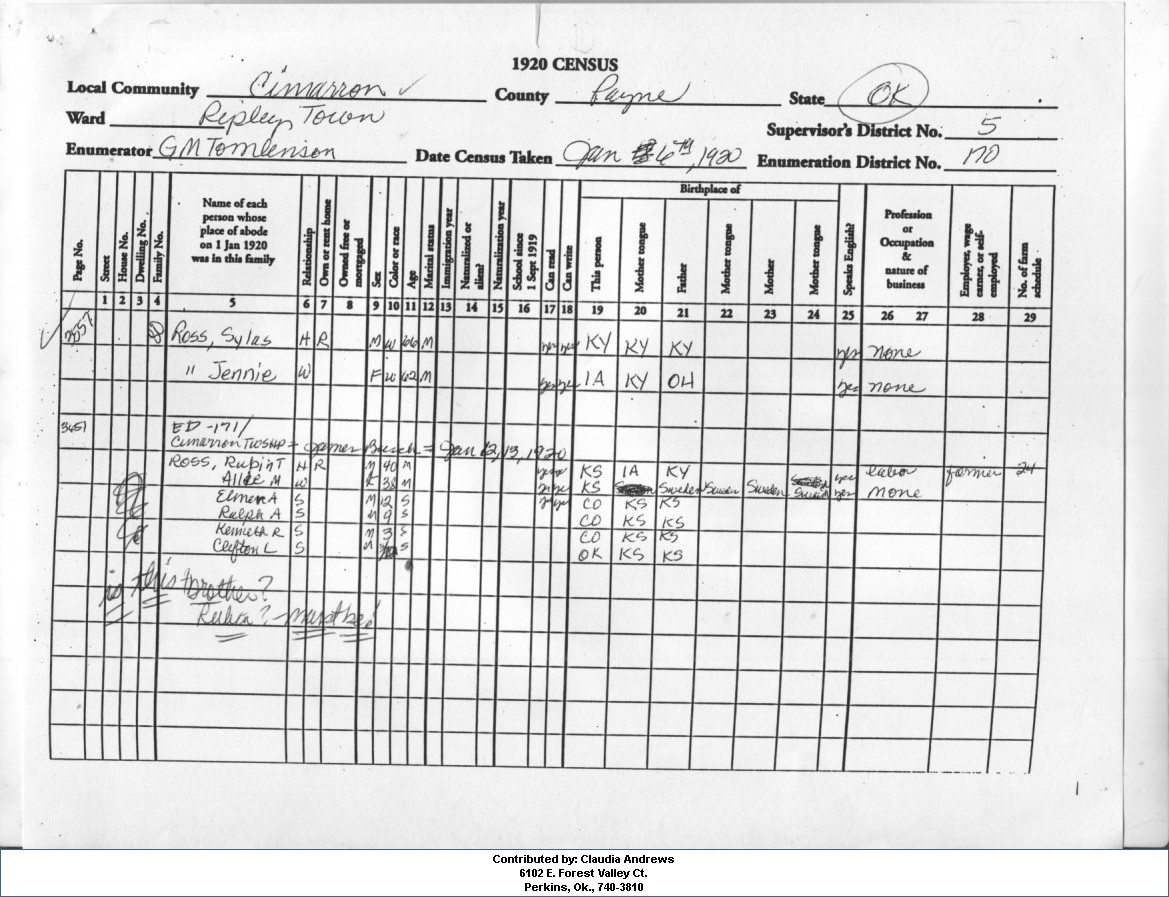 1920 CENSUS
Local Community Cimarron ✓ County Payne State OK
Ward Ripley Town Supervisor's District No. 5
Enumerator GM Tomlenson Date Census Taken Jan 6th, 1920 Enumeration District No. 170
Birthplace of
Page No. Street House No. Dwelling No. Family No. Name of each person whose place of abode on 1 Jan 1920 was in this family Relationship Own or rent home Owned free or mortgaged Sex Color or race Age Marital status Immigration year Naturalized or alien? Naturalization year School since 1 Sept 1919 Can read Can write This person Mother tongue Father Mother tongue Mother Mother tongue Speaks English? Profession or Occupation & nature of business Employer, wage earner, or self-employed No. of farm schedule
1 2 3 4 5 6 7 8 9 10 11 12 13 14 15 16 17 18 19 20 21 22 23 24 25 26 27 28 29
Ross, Sylas H R M W 66 M yes yes KY KY KY yes none
" Jennie W F W 62 M yes yes IA KY OH yes none
3451 ED-171/
Cimarron TWSHP = James = Jan 12, 13, 1920
Ross, Rubin T H R M 40 M KS IA KY yes labor farmer 24
Allie M W 38 M KS Sweden Sweden Sweden Sweden yes None
Elmer A S M 12 S CO KS KS
Ralph A S M 9 S CO KS KS
Kenneth R S M 3 S CO KS KS
Clifton L S M S OK KS KS
is this brother?
Rubin? - must be!
Contributed by: Claudia Andrews
6102 E. Forest Valley Ct.
Perkins, Ok., 740-3810